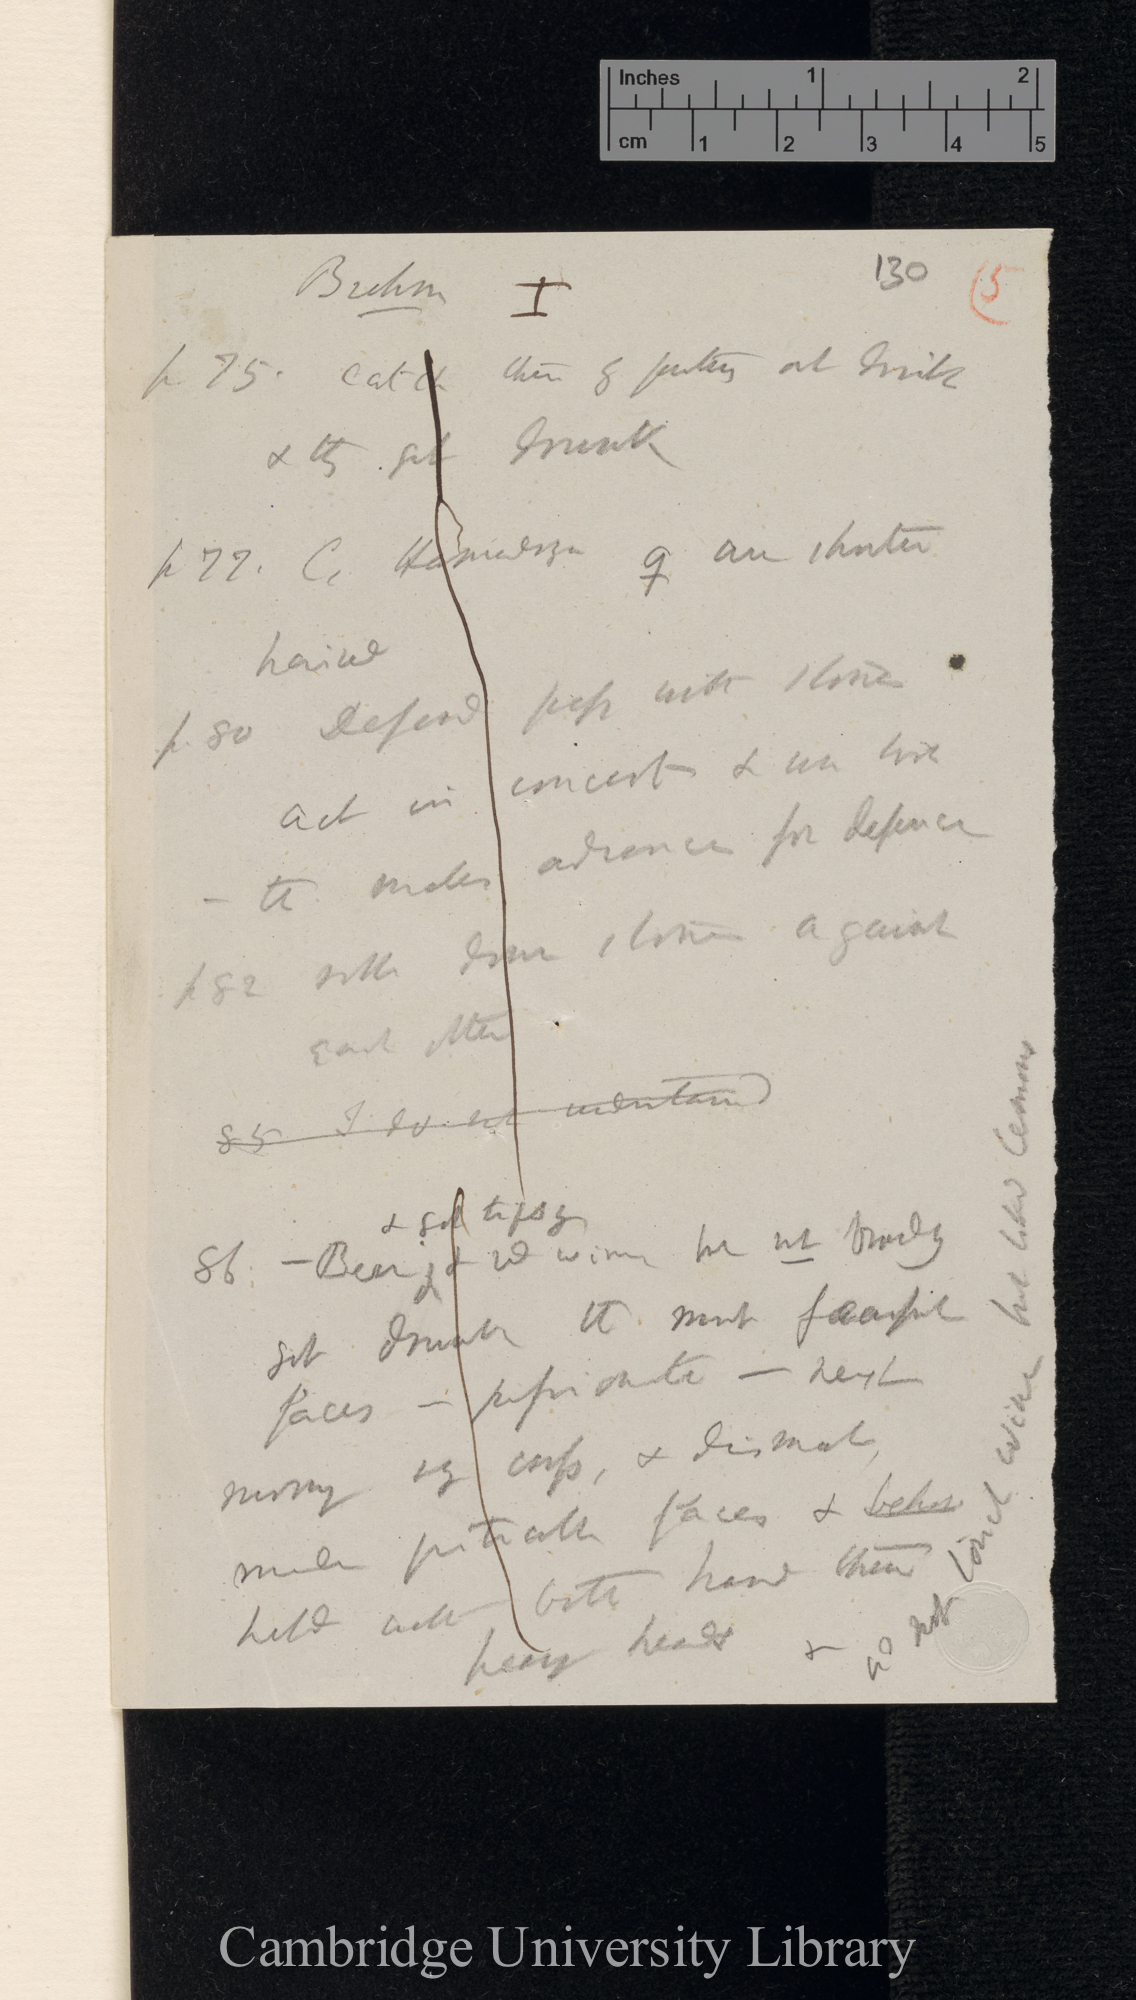 Inches 1 2
cm 1 2 3 4 5
Brehm I 130 (5
p. 75. catch them by putting out drink
& they get drunk
p 77. C. Hamadryas ♀ are shorter
haired
p. 80 Defend pass with stones
act in concert &
- the males advance for defence
p 82 rolls down stones against
each other
85 I do not understand
& got tipsy
86. - Beer & red wine but not brandy
got drunk the most fearful
faces - - next
morning very cross, & dismal,
made pitiable faces &
held with both hand their
heavy heads &
do not touch wine but liked lemons
Cambridge University Library